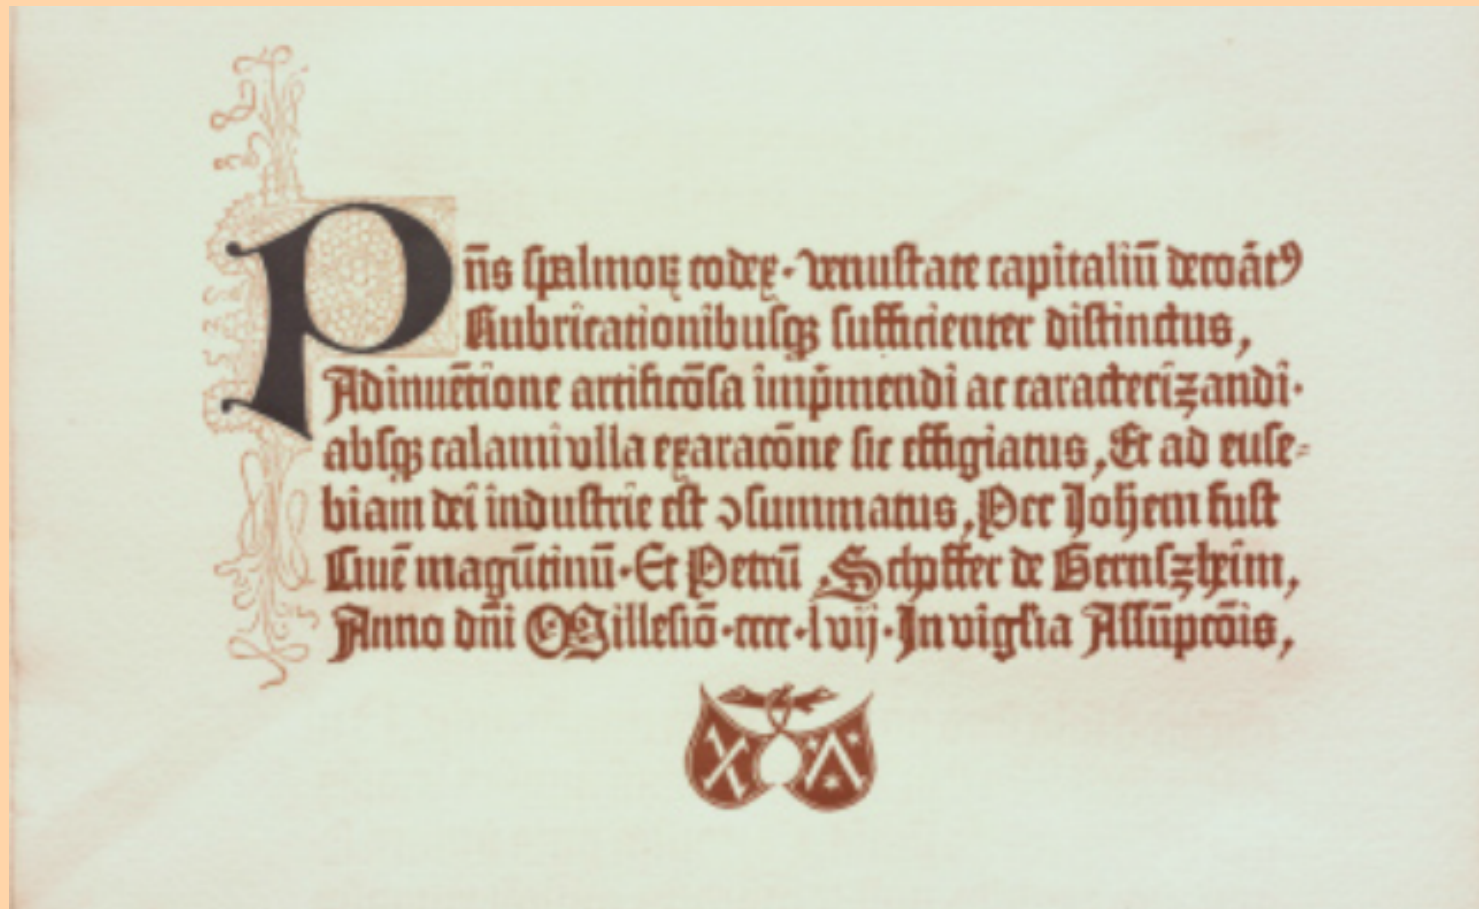 Pñs spalmoꝝ codex · venustate capitaliū decoratꝰ
Rubricationibusqꝫ sufficienter distinctus,
Adinuētione artificōsa imp̄mendi ac caracterizandi ·
absqꝫ calami vlla exaracōne sic effigiatus, Et ad euse-
biam dei industrie est ↄsummatus, Per Joh̄em fust
Ciuē magūtinū · Et Petrū Schoffer de Gernszheim,
Anno dn̄i Millesiō · cccc · lvij · In vigilia Assūpcōis,